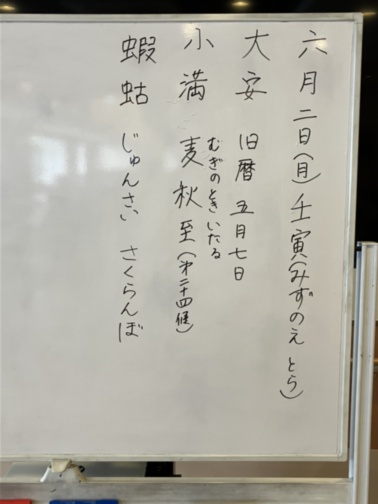 六月二日(月)壬寅(みずのえ とら)
大安 旧暦 五月七日
むぎのときいたる
小満 麦秋至(第二十四候)
蝦蛄 じゅんさい さくらんぼ